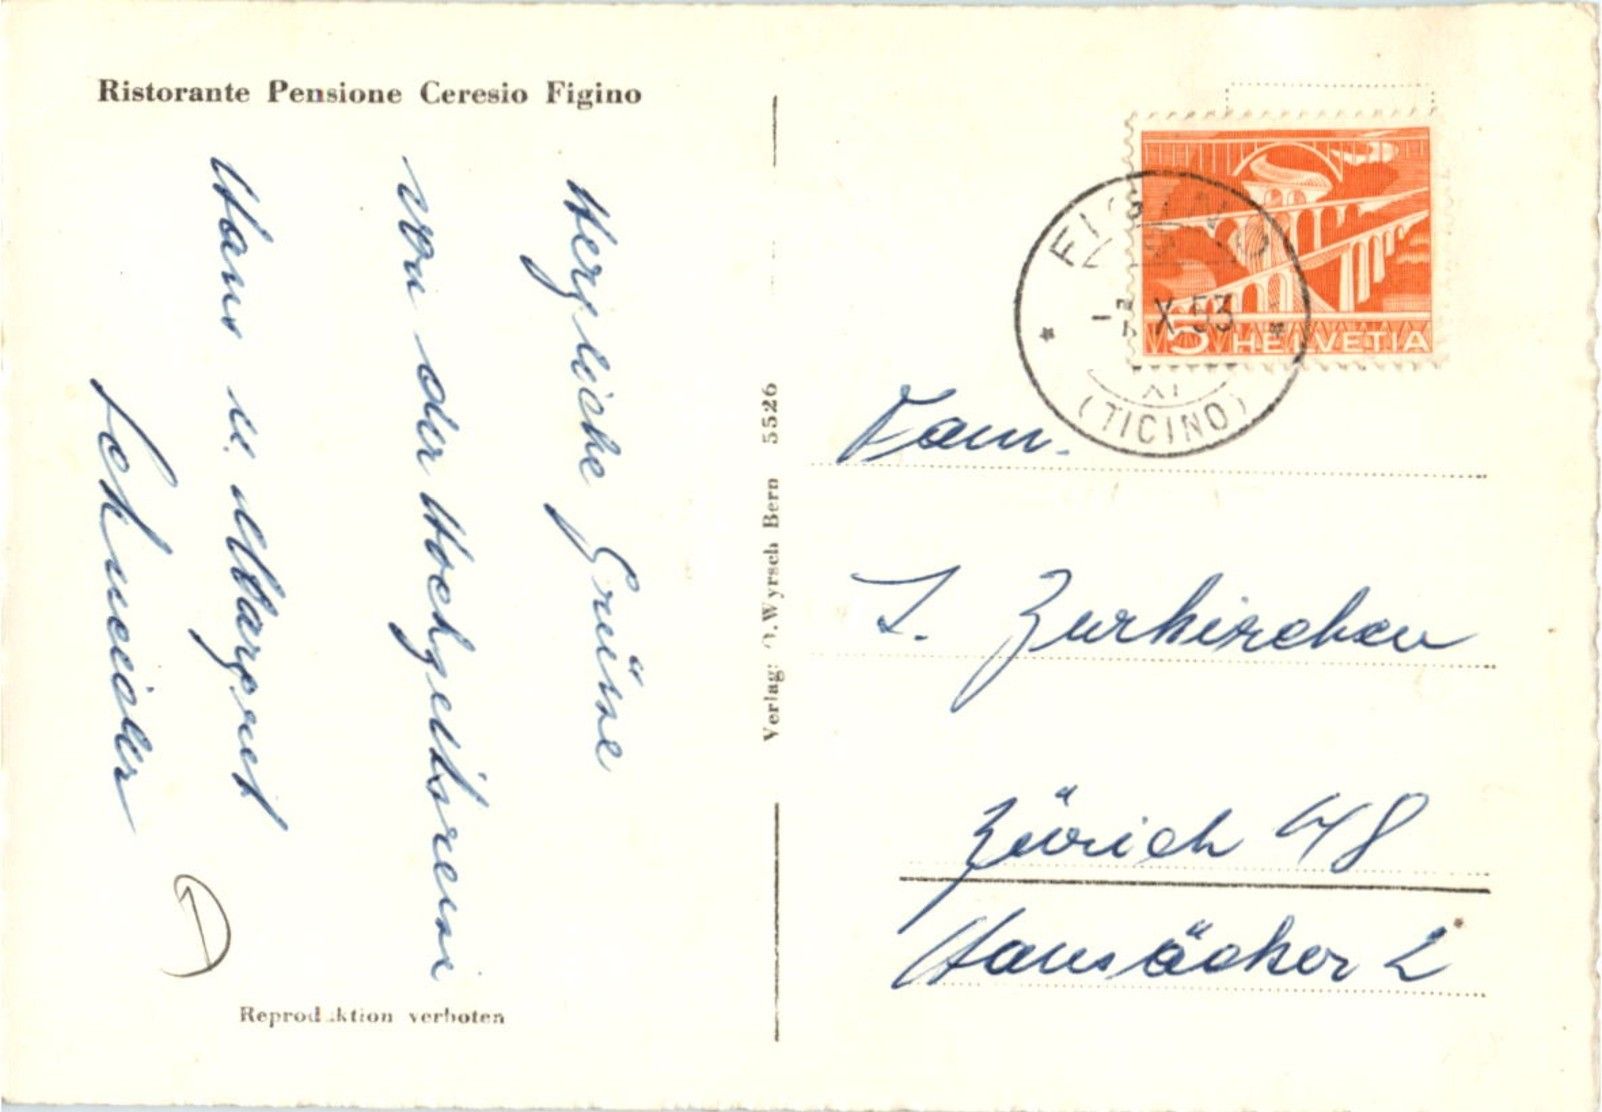 Ristorante Pensione Ceresio Figino
Herzliche Grüsse
von der Hochzeitsreise
Hans u. Margret
Schneider
D
Reproduktion verboten
Verlag: O. Wyrsch Bern 5526
FIGINO
X.53
XI
(TICINO)
5 HELVETIA
Fam.
J. Zurkirchen
Zürich 48
Hausäcker 2